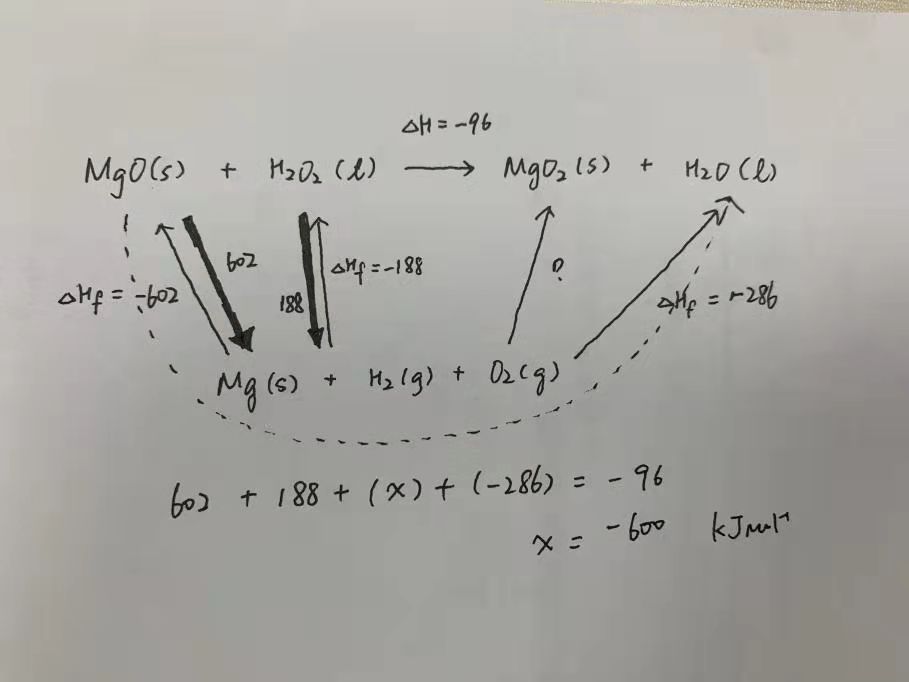 ΔH = -96
MgO(s) + H₂O₂(l) → MgO₂(s) + H₂O(l)
602
ΔHf = -188
?
ΔHf = -602
188
ΔHf = -286
Mg(s) + H₂(g) + O₂(g)
602 + 188 + (x) + (-286) = -96
x = -600 kJmol⁻¹